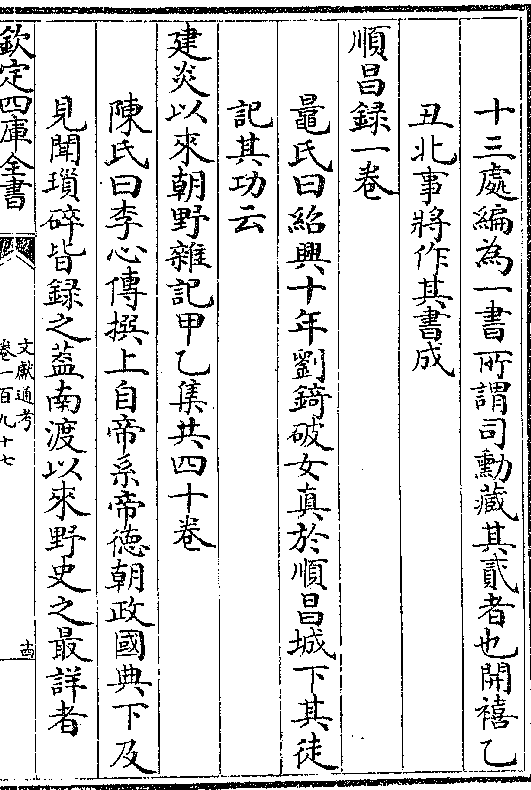 十三處編為一書所謂司勳藏其貳者也開禧乙
丑北事將作其書成
順昌録一卷
鼂氏曰紹興十年劉錡破女真於順昌城下其徒
記其功云
建炎以來朝野雜記甲乙集共四十卷
陳氏曰李心傳撰上自帝系帝德朝政國典下及
見聞瑣碎皆録之葢南渡以來野史之最詳者
欽定四庫全書
文獻通考
卷一百九十七
十四